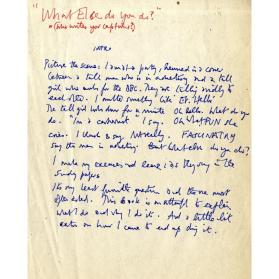 "What Else do you do?"
*(Who writes your captions?)
INTRO
Picture the scene: I am at a party, hemmed in a corner
between a tall man who is in marketing and a tall
girl who works for the BBC. They are talking mostly to
each other. I mutter something like
The tall girl looks down for a minute. Oh hello. What do you
do. "I'm a cartoonist" I say. Oh WHAT FUN she
cries. I think so I say. Normally. FASCINATING
say the man in marketing. But What else do you do?
I make my excuses and leave as they say in the
Sunday papers
It's my least favourite question and the one most
often asked. This book is an attempt to explain
what I do and why I do it. And a little bit
extra on how I came to end up doing it.